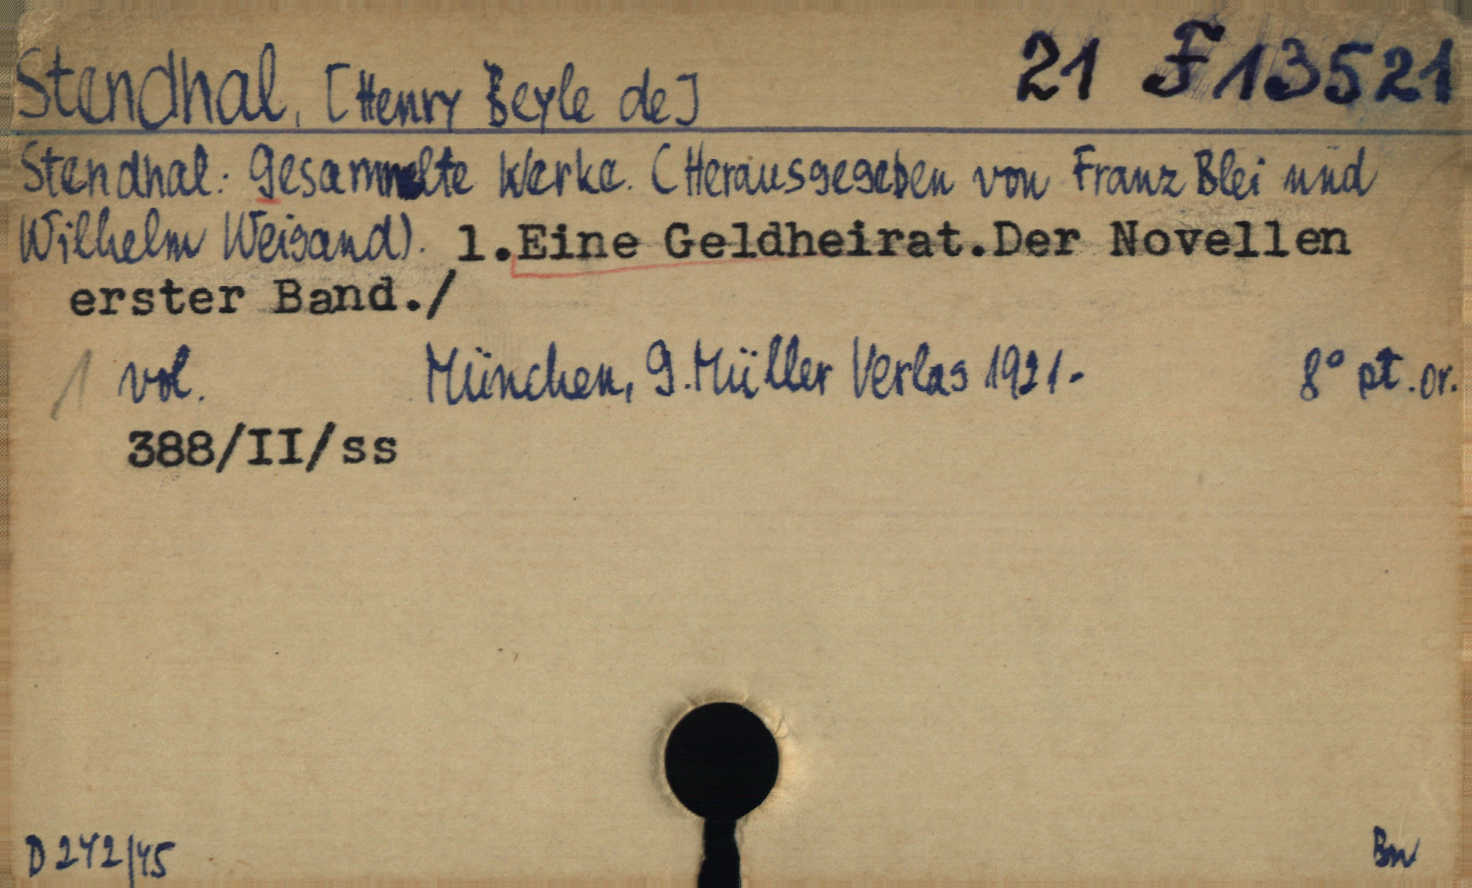 Stendhal, [Henry Beyle de] 21 F 13521
Stendhal: Gesammelte Werke. (Herausgegeben von Franz Blei und
Wilhelm Weigand). 1.Eine Geldheirat.Der Novellen
erster Band./
1 vol. München, G. Müller Verlag 1921.- 8° pt. or.
388/II/ss
D 242/45 Bn